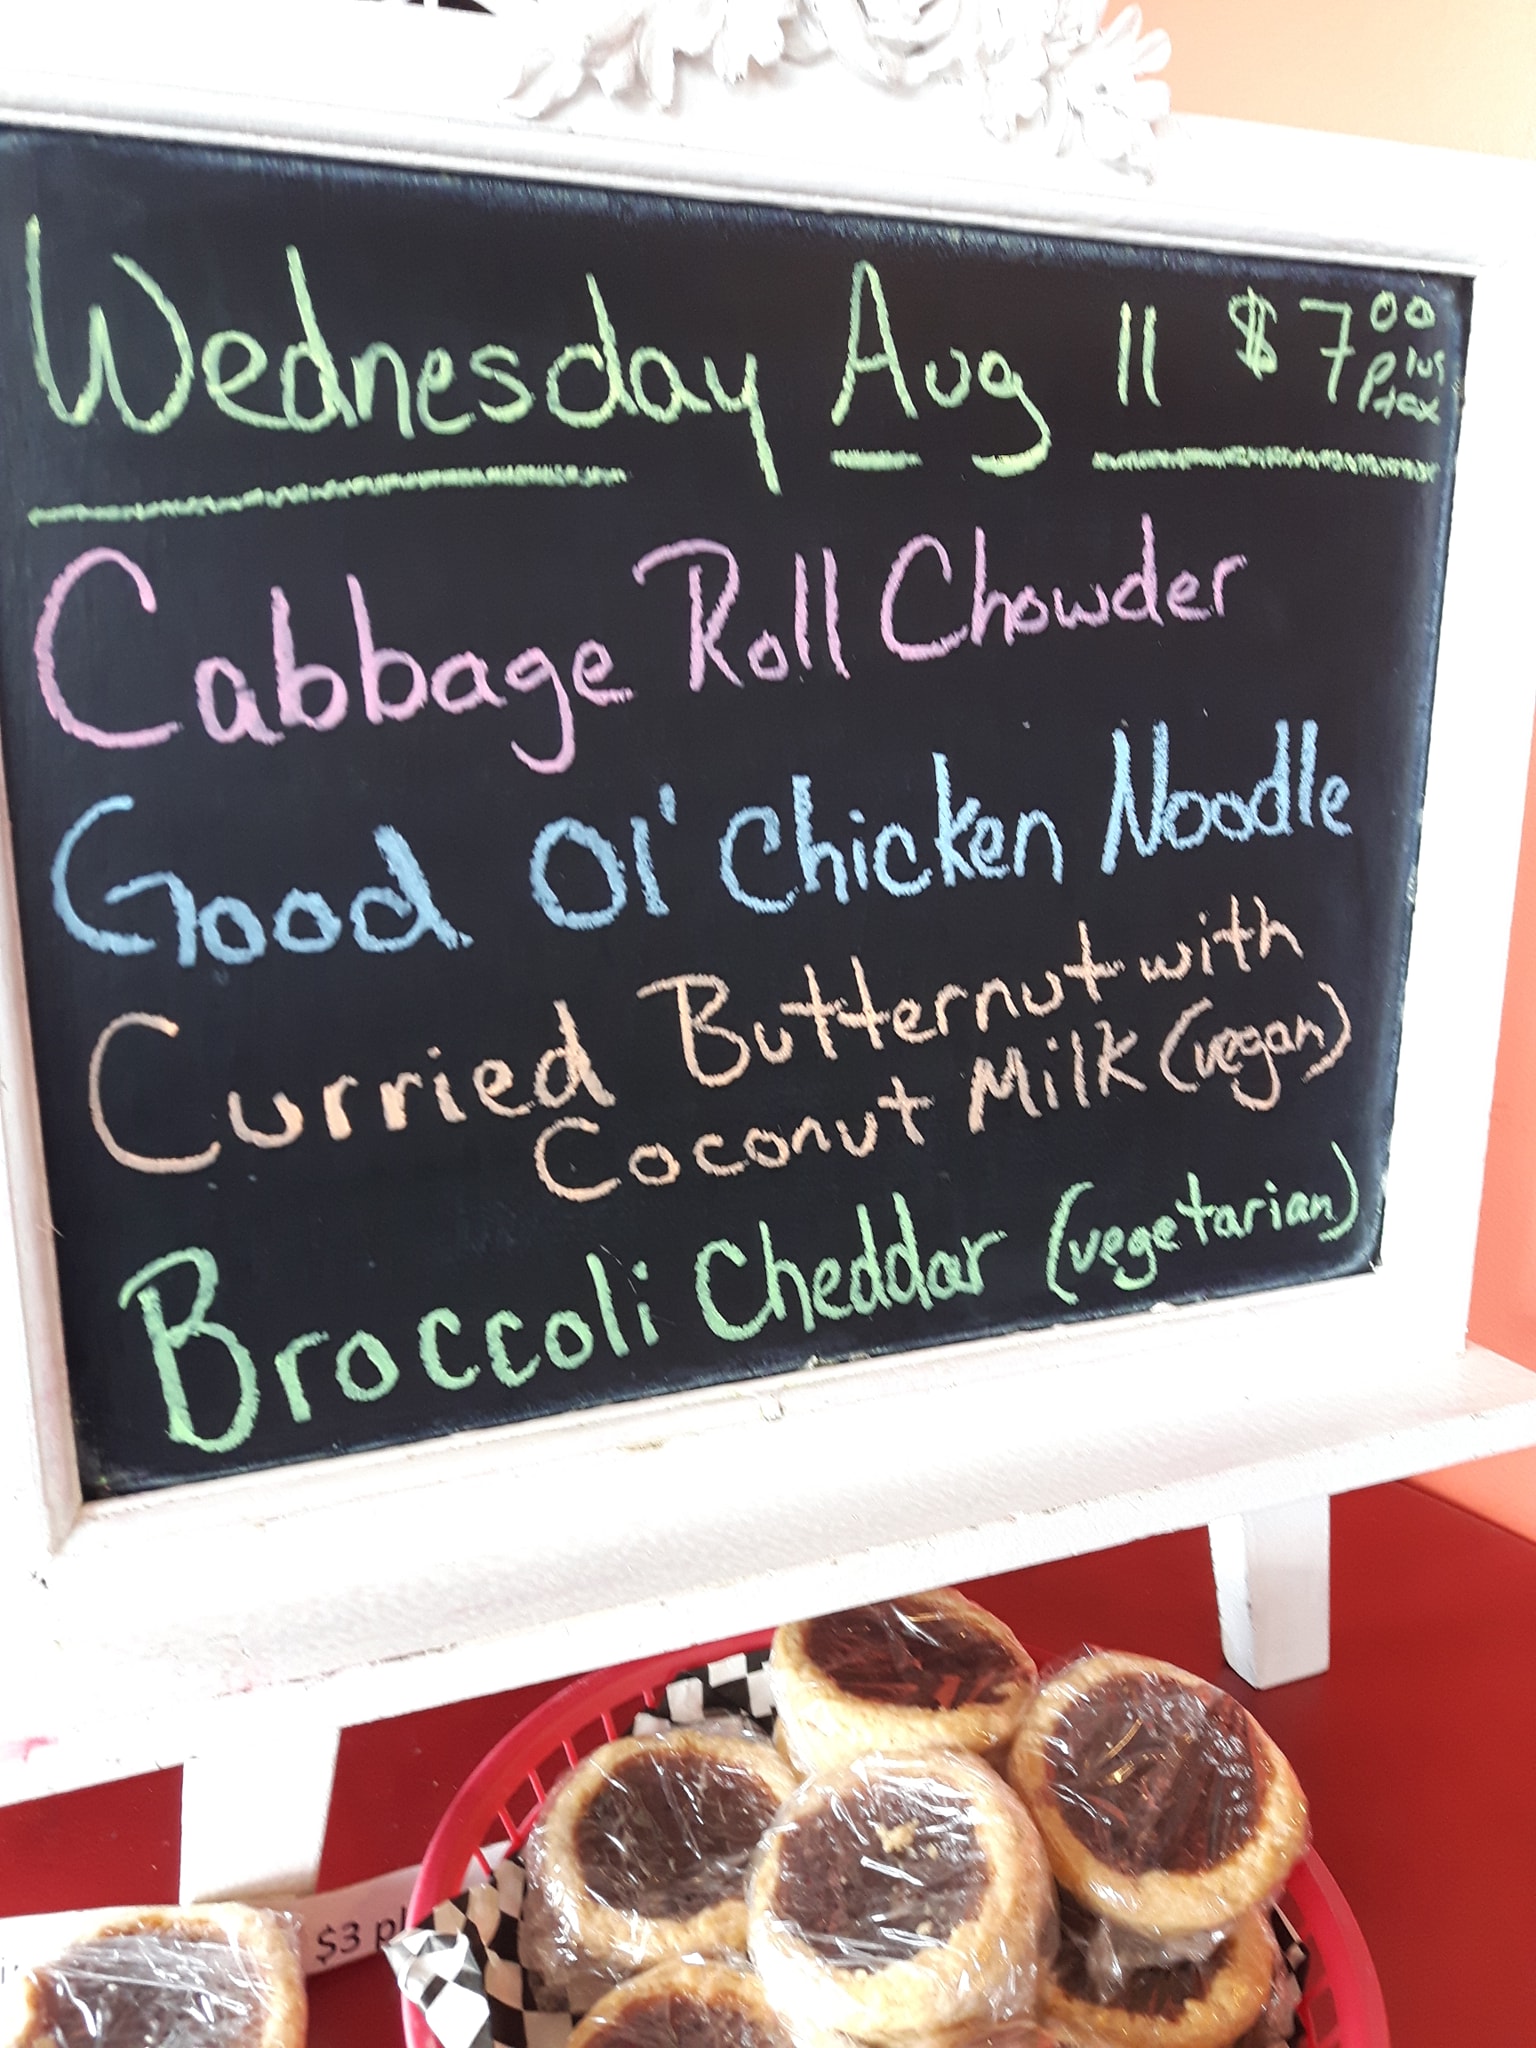 Wednesday Aug 11 $7.00 plus tax
Cabbage Roll Chowder
Good Ol' Chicken Noodle
Curried Butternut with
Coconut Milk (vegan)
Broccoli Cheddar (vegetarian)
$3